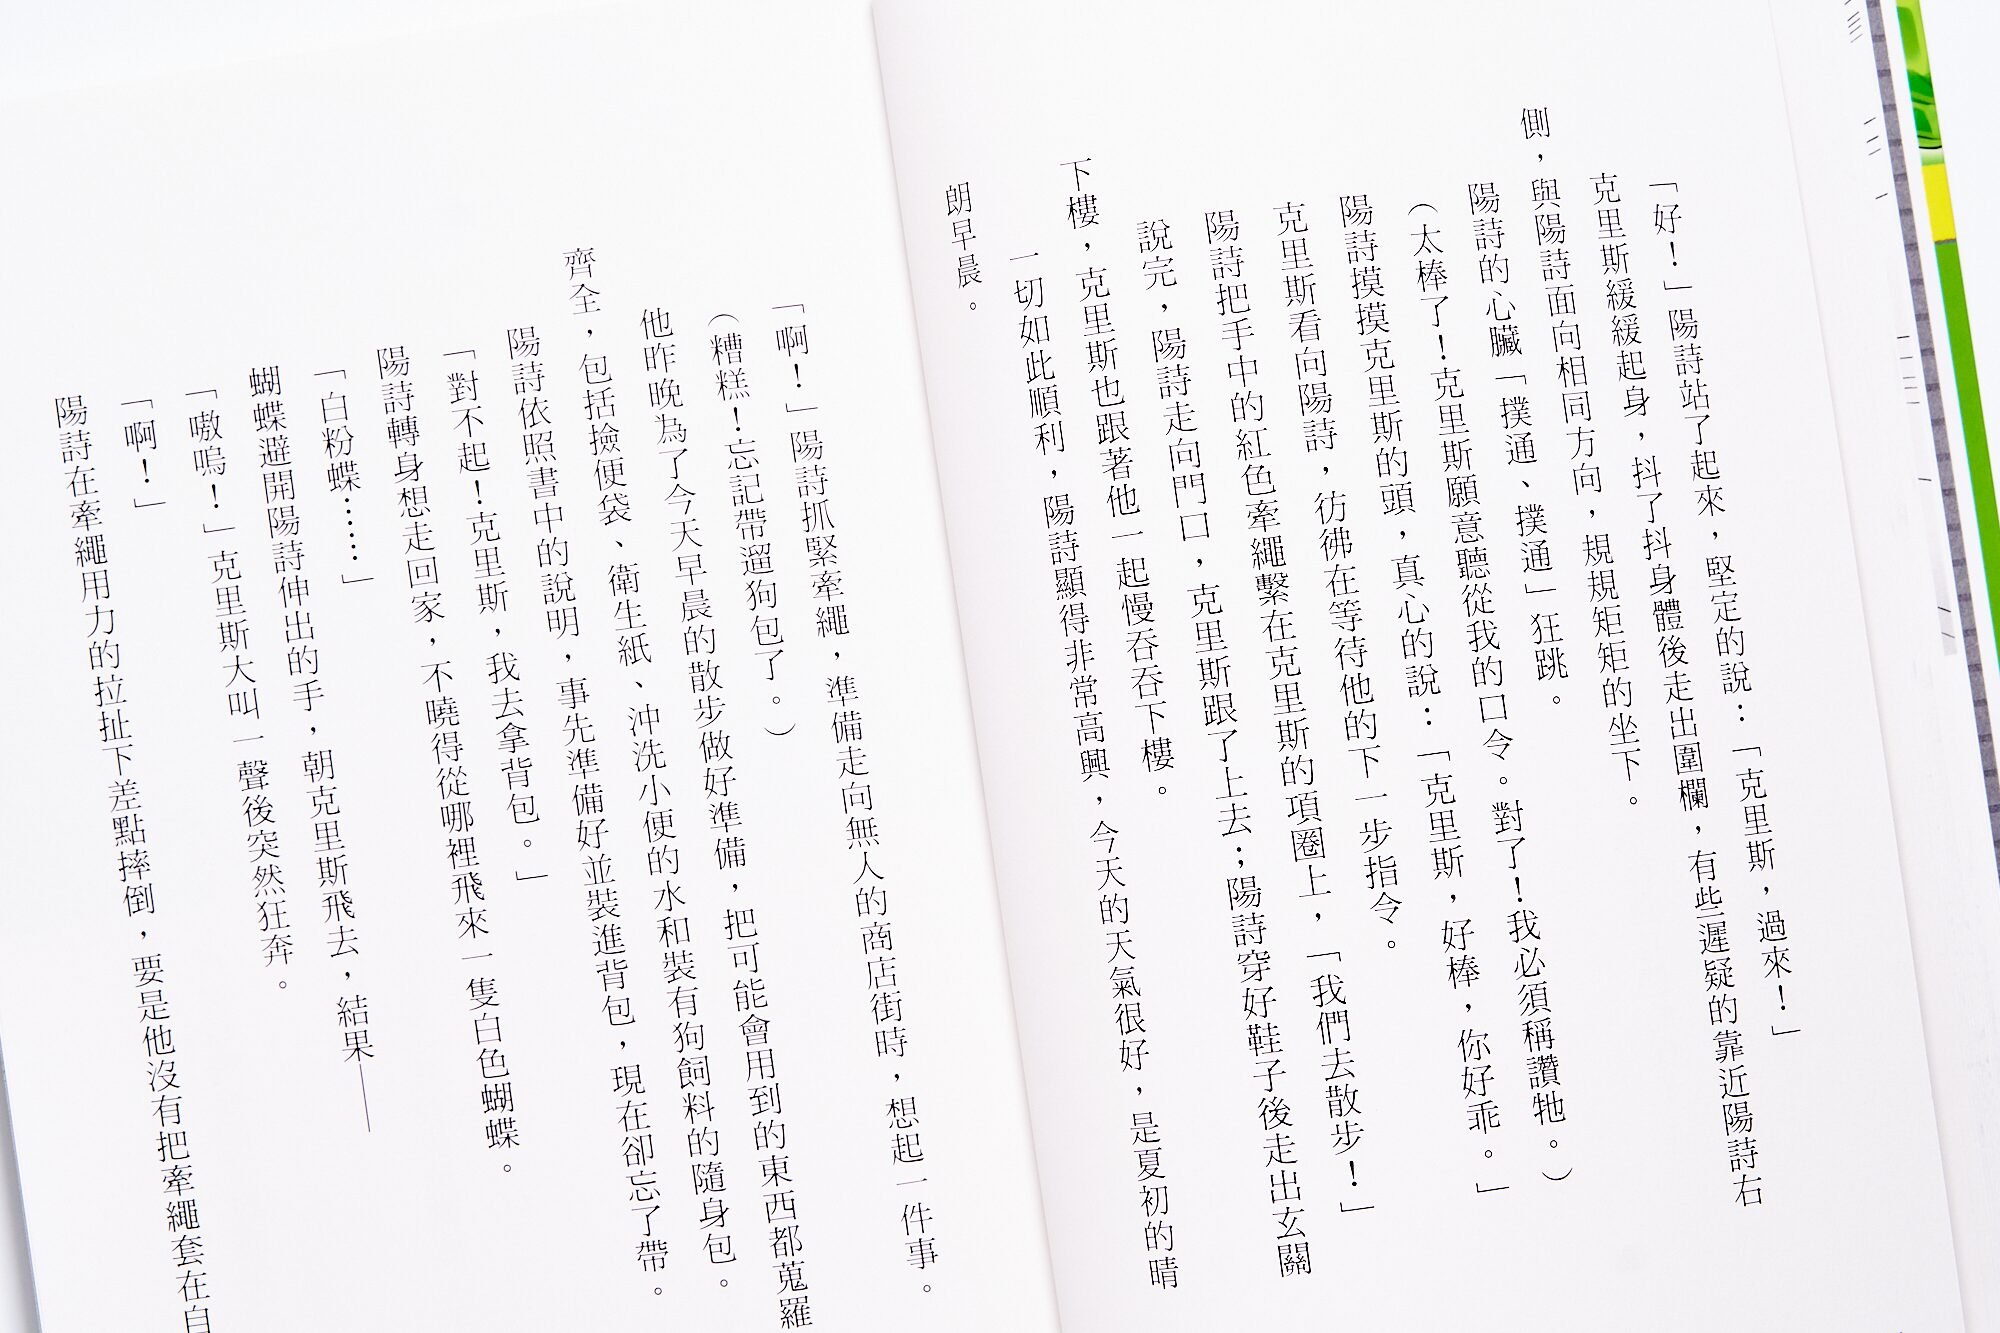 「好！」陽詩站了起來，堅定的說：「克里斯，過來！」
克里斯緩緩起身，抖了抖身體後走出圍欄，有些遲疑的靠近陽詩右
側，與陽詩面向相同方向，規規矩矩的坐下。
陽詩的心臟「撲通、撲通」狂跳。
（太棒了！克里斯願意聽從我的口令。對了！我必須稱讚牠。）
陽詩摸摸克里斯的頭，真心的說：「克里斯，好棒，你好乖。」
克里斯看向陽詩，彷彿在等待他的下一步指令。
陽詩把手中的紅色牽繩繫在克里斯的項圈上，「我們去散步！」
說完，陽詩走向門口，克里斯跟了上去；陽詩穿好鞋子後走出玄關
下樓，克里斯也跟著他一起慢吞吞下樓。
一切如此順利，陽詩顯得非常高興，今天的天氣很好，是夏初的晴
朗早晨。
「啊！」陽詩抓緊牽繩，準備走向無人的商店街時，想起一件事。
（糟糕！忘記帶遛狗包了。）
他昨晚為了今天早晨的散步做好準備，把可能會用到的東西都蒐羅
齊全，包括撿便袋、衛生紙、沖洗小便的水和裝有狗飼料的隨身包。
陽詩依照書中的說明，事先準備好並裝進背包，現在卻忘了帶。
「對不起！克里斯，我去拿背包。」
陽詩轉身想走回家，不曉得從哪裡飛來一隻白色蝴蝶。
「白粉蝶……」
蝴蝶避開陽詩伸出的手，朝克里斯飛去，結果——
「嗷嗚！」克里斯大叫一聲後突然狂奔。
「啊！」
陽詩在牽繩用力的拉扯下差點摔倒，要是他沒有把牽繩套在自